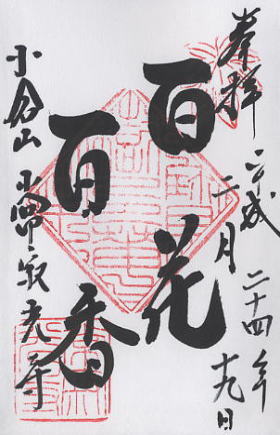 奉拝
平成二十四年
二月十九日
百花
百香
小倉山 常寂光寺